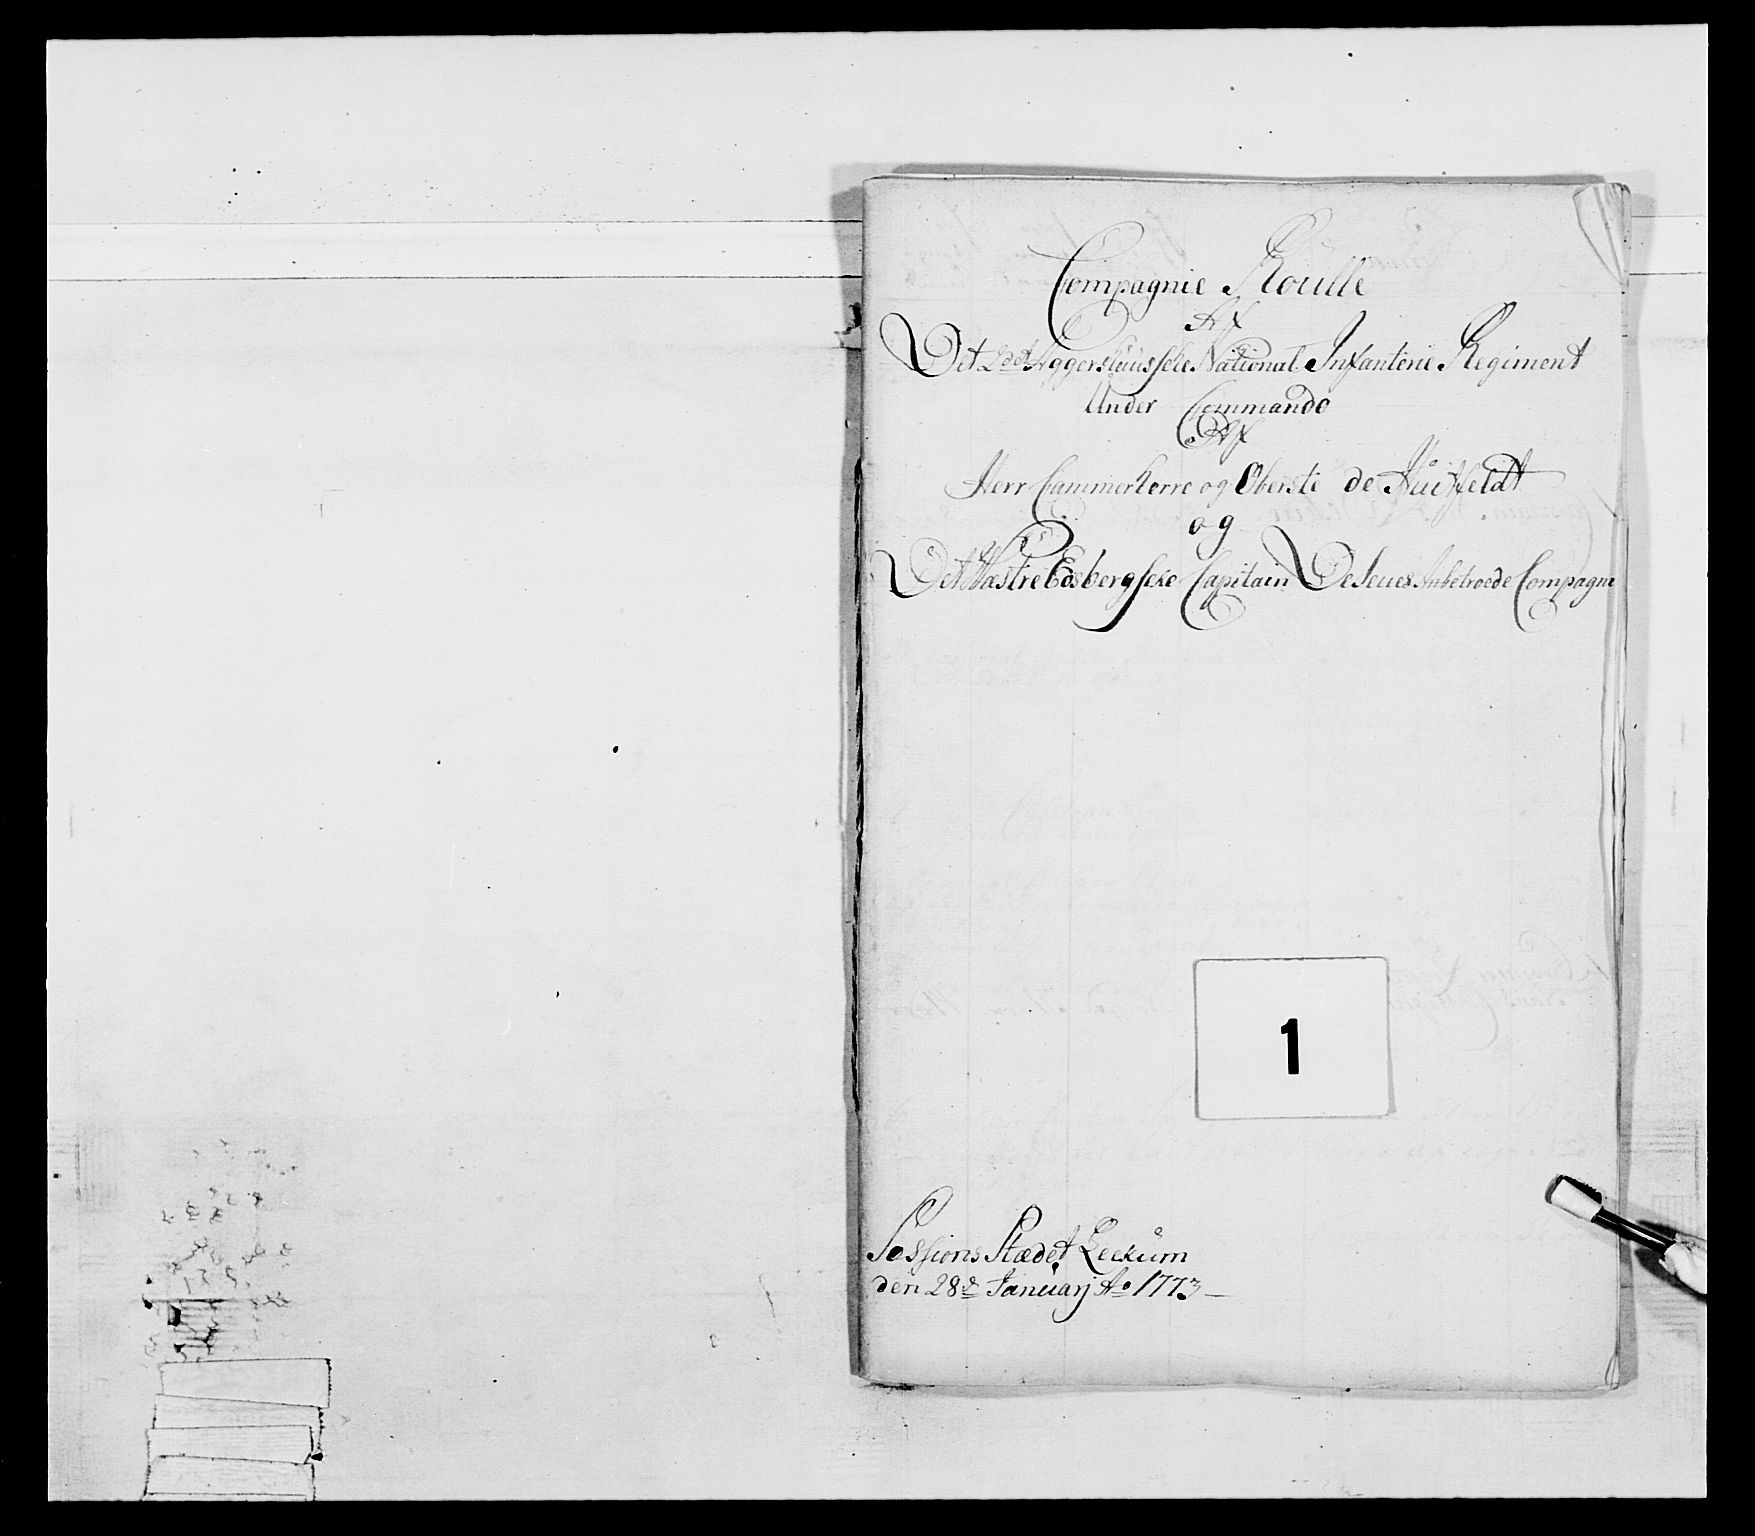 Compagnie Roulle
Af
Det 2det Aggershuusiske National Infanterie Regiment
Under Commando
Af
Herr Cammerherre og Oberste de Huitfeldt
og
Det Wæstre Edsbergske Capitain De Seues Anbetroede Compagnie
1
Sessions Stædet Leckum
den 28de Januarj Ao 1773